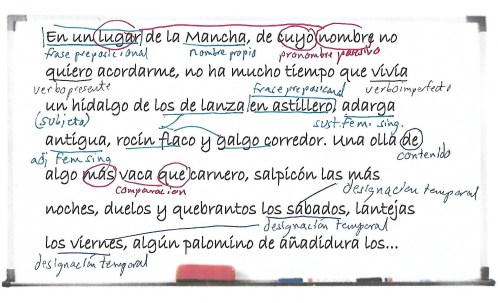 En un lugar de la Mancha, de cuyo nombre no
frase preposicional nombre propio pronombre posesivo
quiero acordarme, no ha mucho tiempo que vivía
verbo presente frase preposicional verbo imperfecto
un hidalgo de los de lanza en astillero, adarga
(subjeto) sust. fem. sing.
antigua, rocín flaco y galgo corredor. Una olla de
adj fem sing contenido
algo más vaca que carnero, salpicón las más
comparación designación temporal
noches, duelos y quebrantos los sábados, lantejas
designación temporal
los viernes, algún palomino de añadidura los...
designación temporal